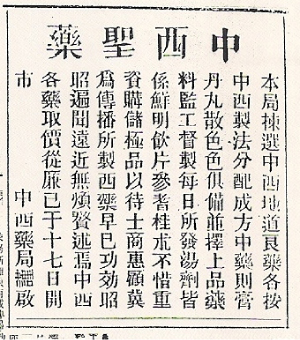 中西聖藥
本局揀選中西地道良藥各按
中西製法分配成方中藥則膏
丹丸散色色俱備並擇上品藥
料監工督製每日所發湯劑皆
係鮮明飲片參耆桂朮不惜重
資購儲極品以待士商惠顧冀
為傳播所製西藥早已功効昭
昭遍聞遠近無煩贅述焉中西
各藥取價從廉已于十七日開
市 中西藥局謹啟